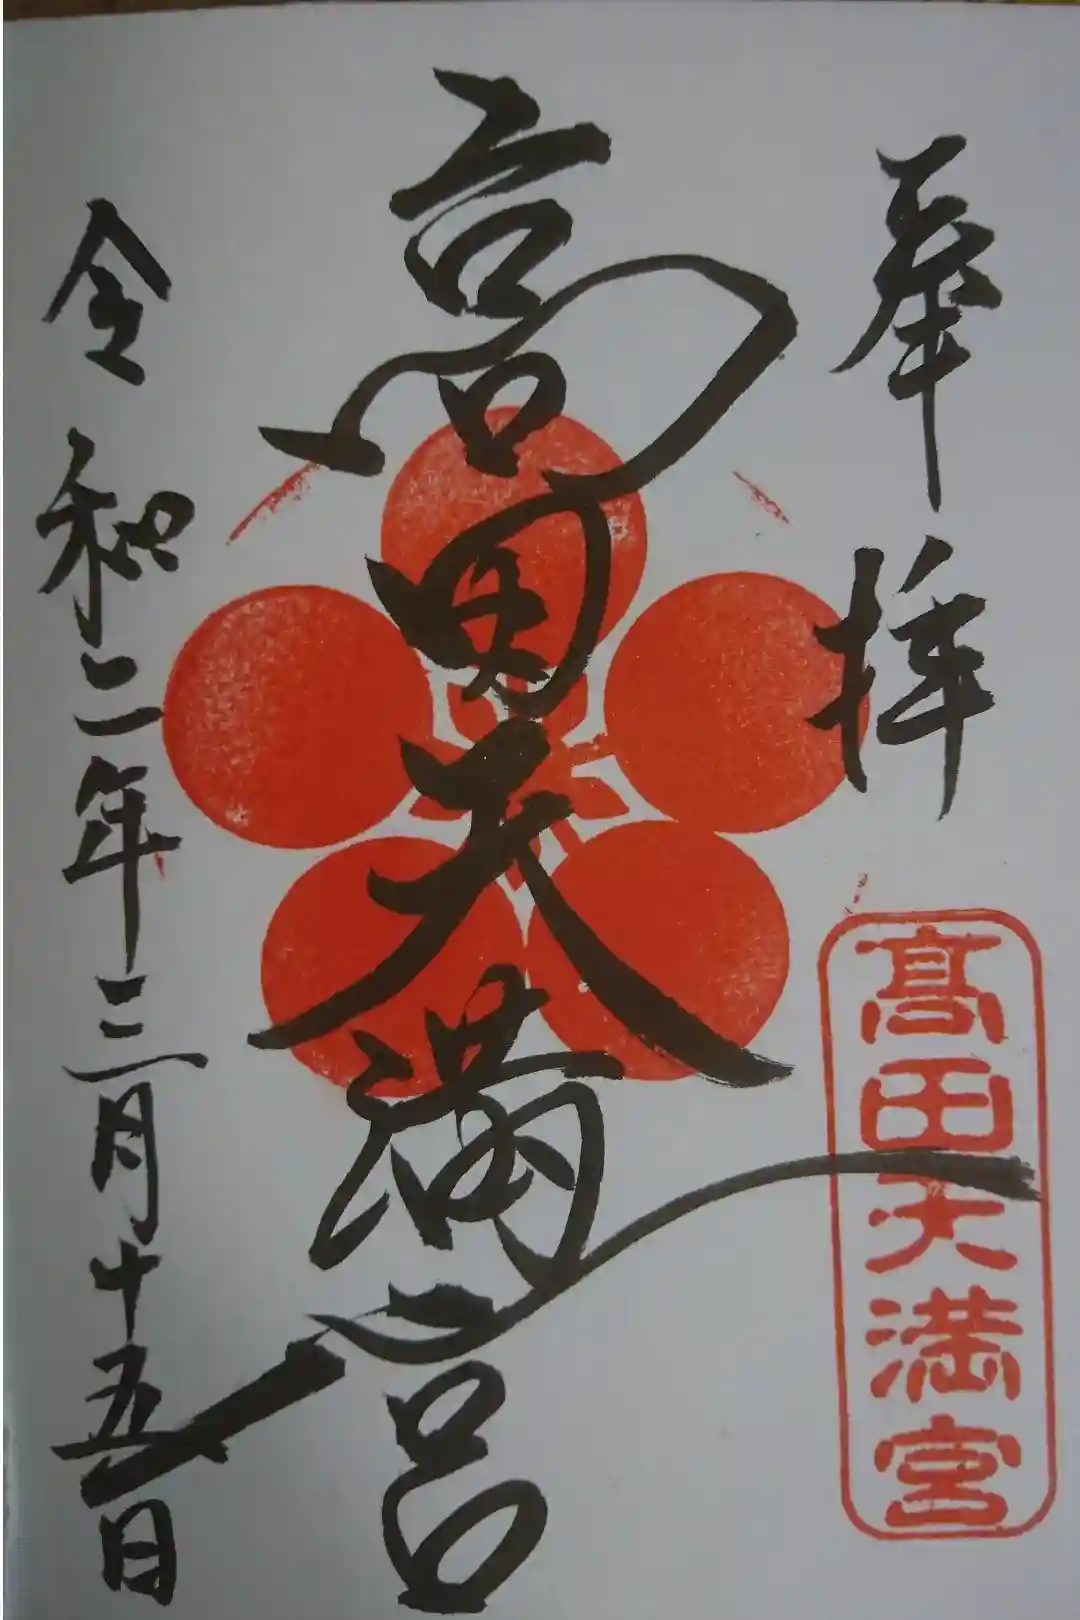 奉拝
髙田天満宮
高田天満宮
令和二年三月十五日